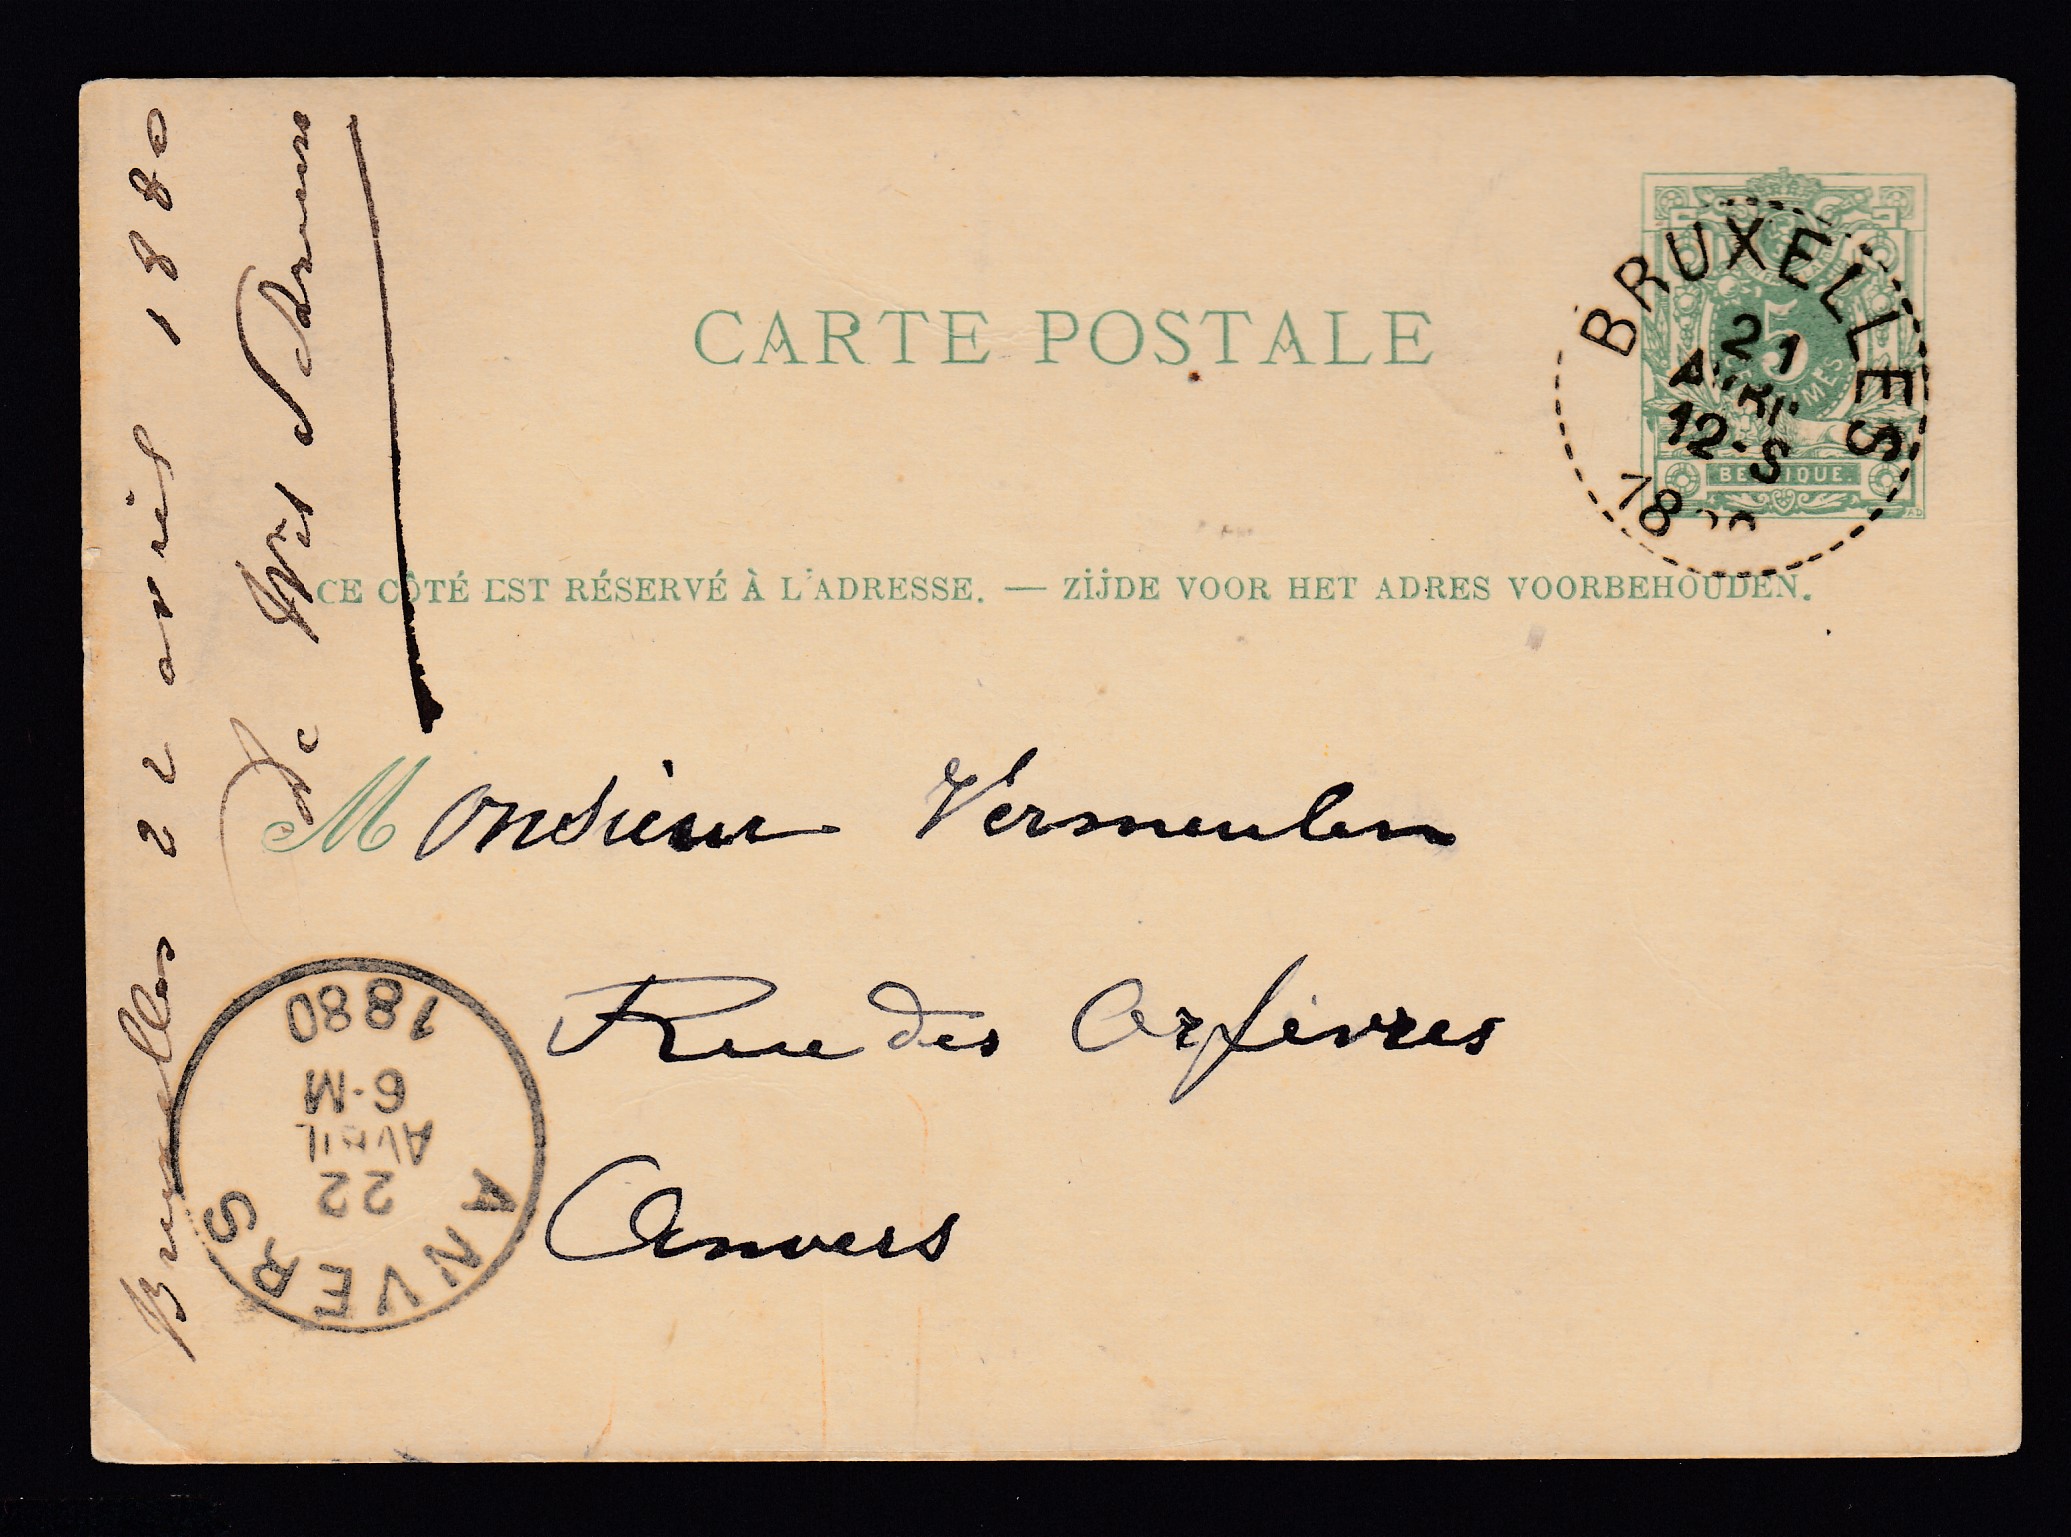 CARTE POSTALE
BRUXELLES
21
AVRIL
12-S
1880
5
CENTIMES
BELGIQUE.
CE CÔTÉ EST RÉSERVÉ À L'ADRESSE. — ZIJDE VOOR HET ADRES VOORBEHOUDEN.
Monsieur Vermeulen
Rue des Orfèvres
Anvers
Bruxelles 22 avril 1880
De
ANVERS
22
AVRIL
6-M
1880